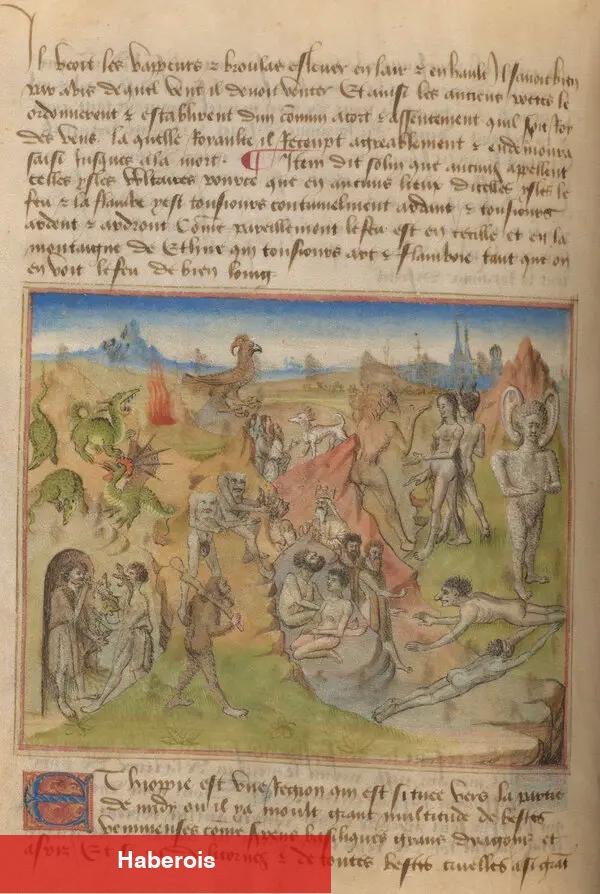 Il veoit les vappeurs & broulas eslever en lair & en hault Il savoit bien
par avis de quel vent il devoit venter Et ainsi les anciens poetes le
ordonnerent & establirent dun cõmun acort & assentement quil soit Roy
des vens. la quelle Royaulte il Receupt agreablement & en demoura
saisi Jusques a la mort. ¶ Item dit solin que aucuns appellent
celles ysles que en aucuns lieux dicelles ysles le
feu & la flambe y est tousiours continuelment ardant & tousiours
ardent & ardront Cõme pareillement le feu est en cecille et en la
montaigne de Ethna qui tousiours art & flamboie tant que on
en voit le feu de bien loing
Ethioppie est une Region qui est situee vers la partie
de midy ou il ya moult grant multitude de bestes
venimeuses cõme basiliques grans dragons et
& de toutes bestes cruelles
Haberois